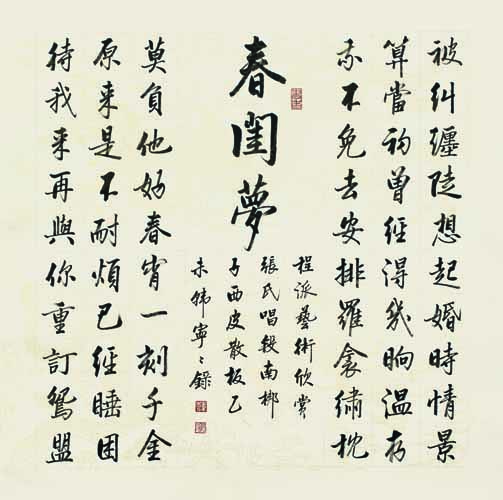 被糾纏陡想起婚時情景
算當初曾經得幾晌溫存
我不免去安排羅衾繡枕
春閨夢
程派藝術欣賞
張氏唱段南梆
子西皮散板乙
未韓寧〻錄
莫負他好春宵一刻千金
原來是不耐煩已經睡困
待我來再與你重訂鴛盟